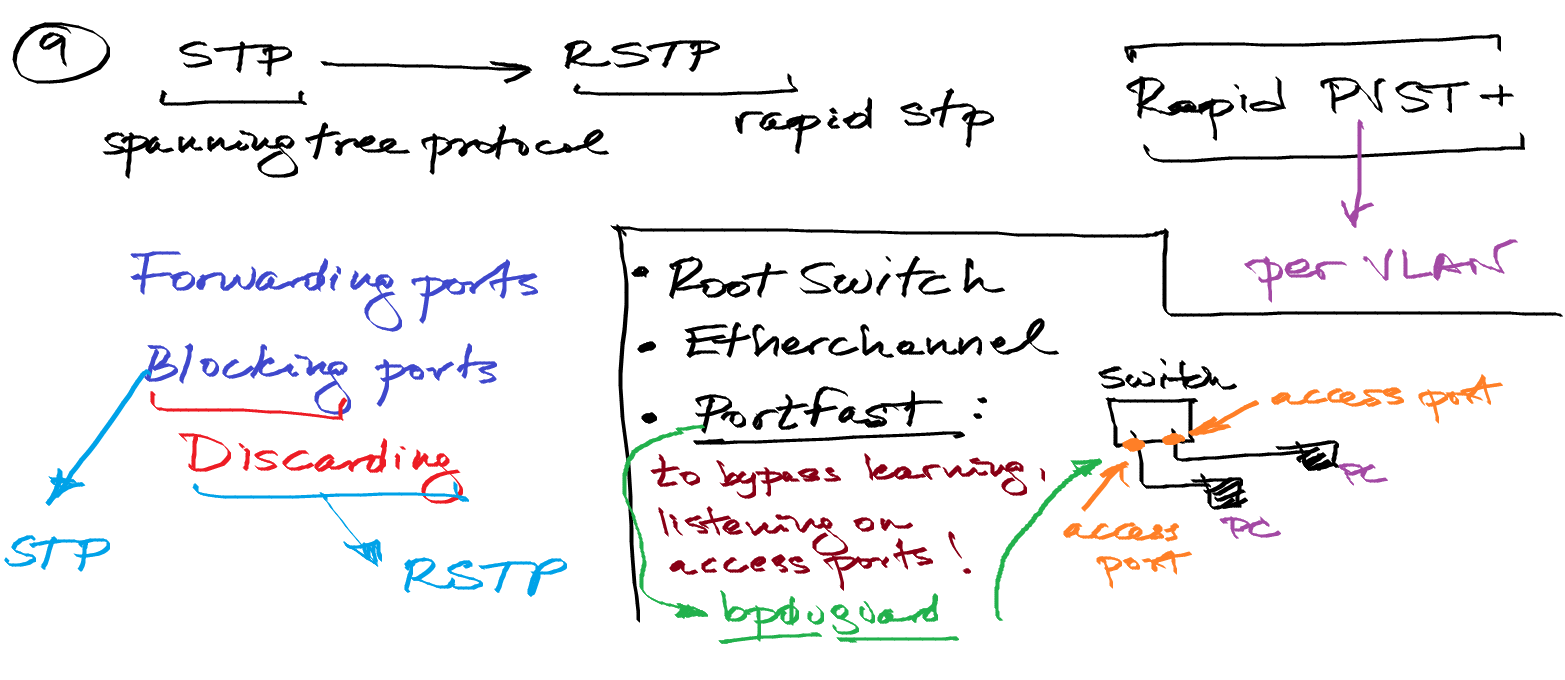 9
STP → RSTP
spanning tree protocol
rapid stp
Rapid PVST+
per VLAN
Forwarding ports
Blocking ports
Discarding
STP
RSTP
• Root Switch
• Etherchannel
• Portfast :
to bypass learning,
listening on
access ports!
bpduguard
switch
access port
PC
PC
access
port